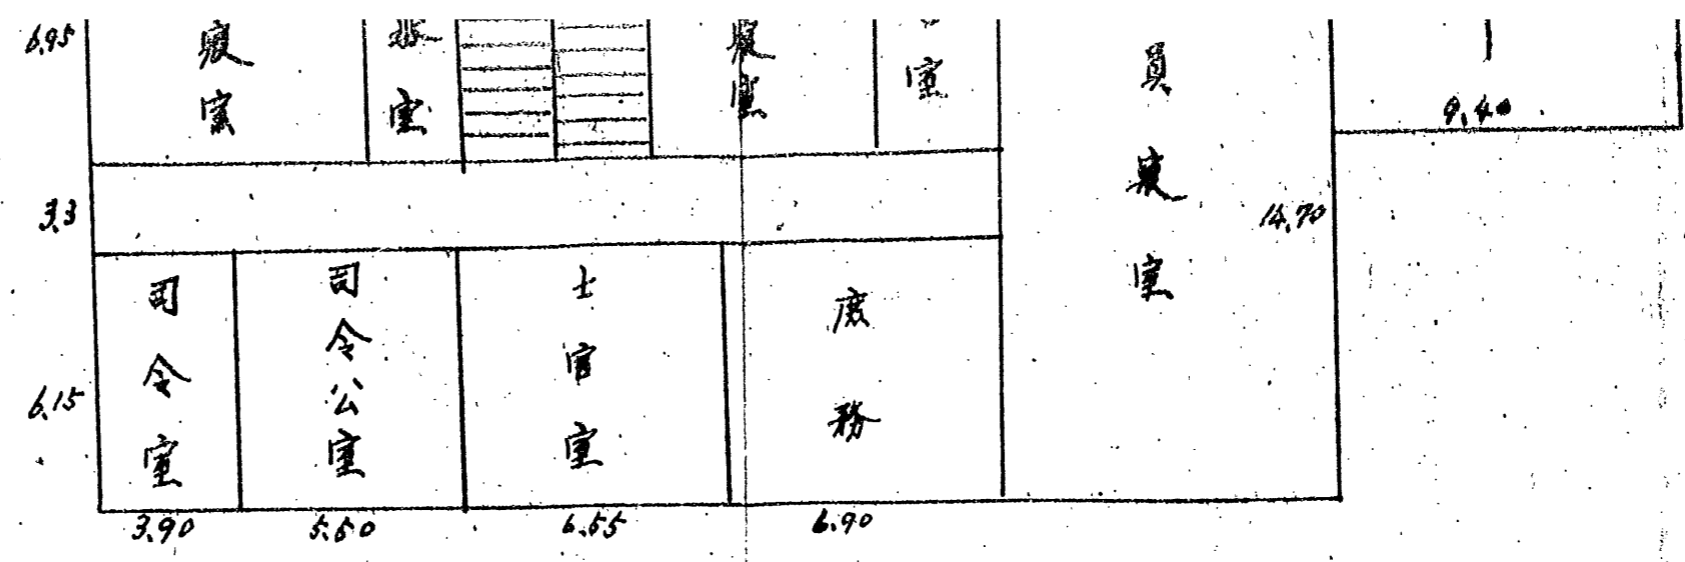 6.95
室
室
室
室
員
室
9.40
3.3
14.70
6.15
司令室
司令公室
士官室
庶務
3.90
5.50
6.55
6.90